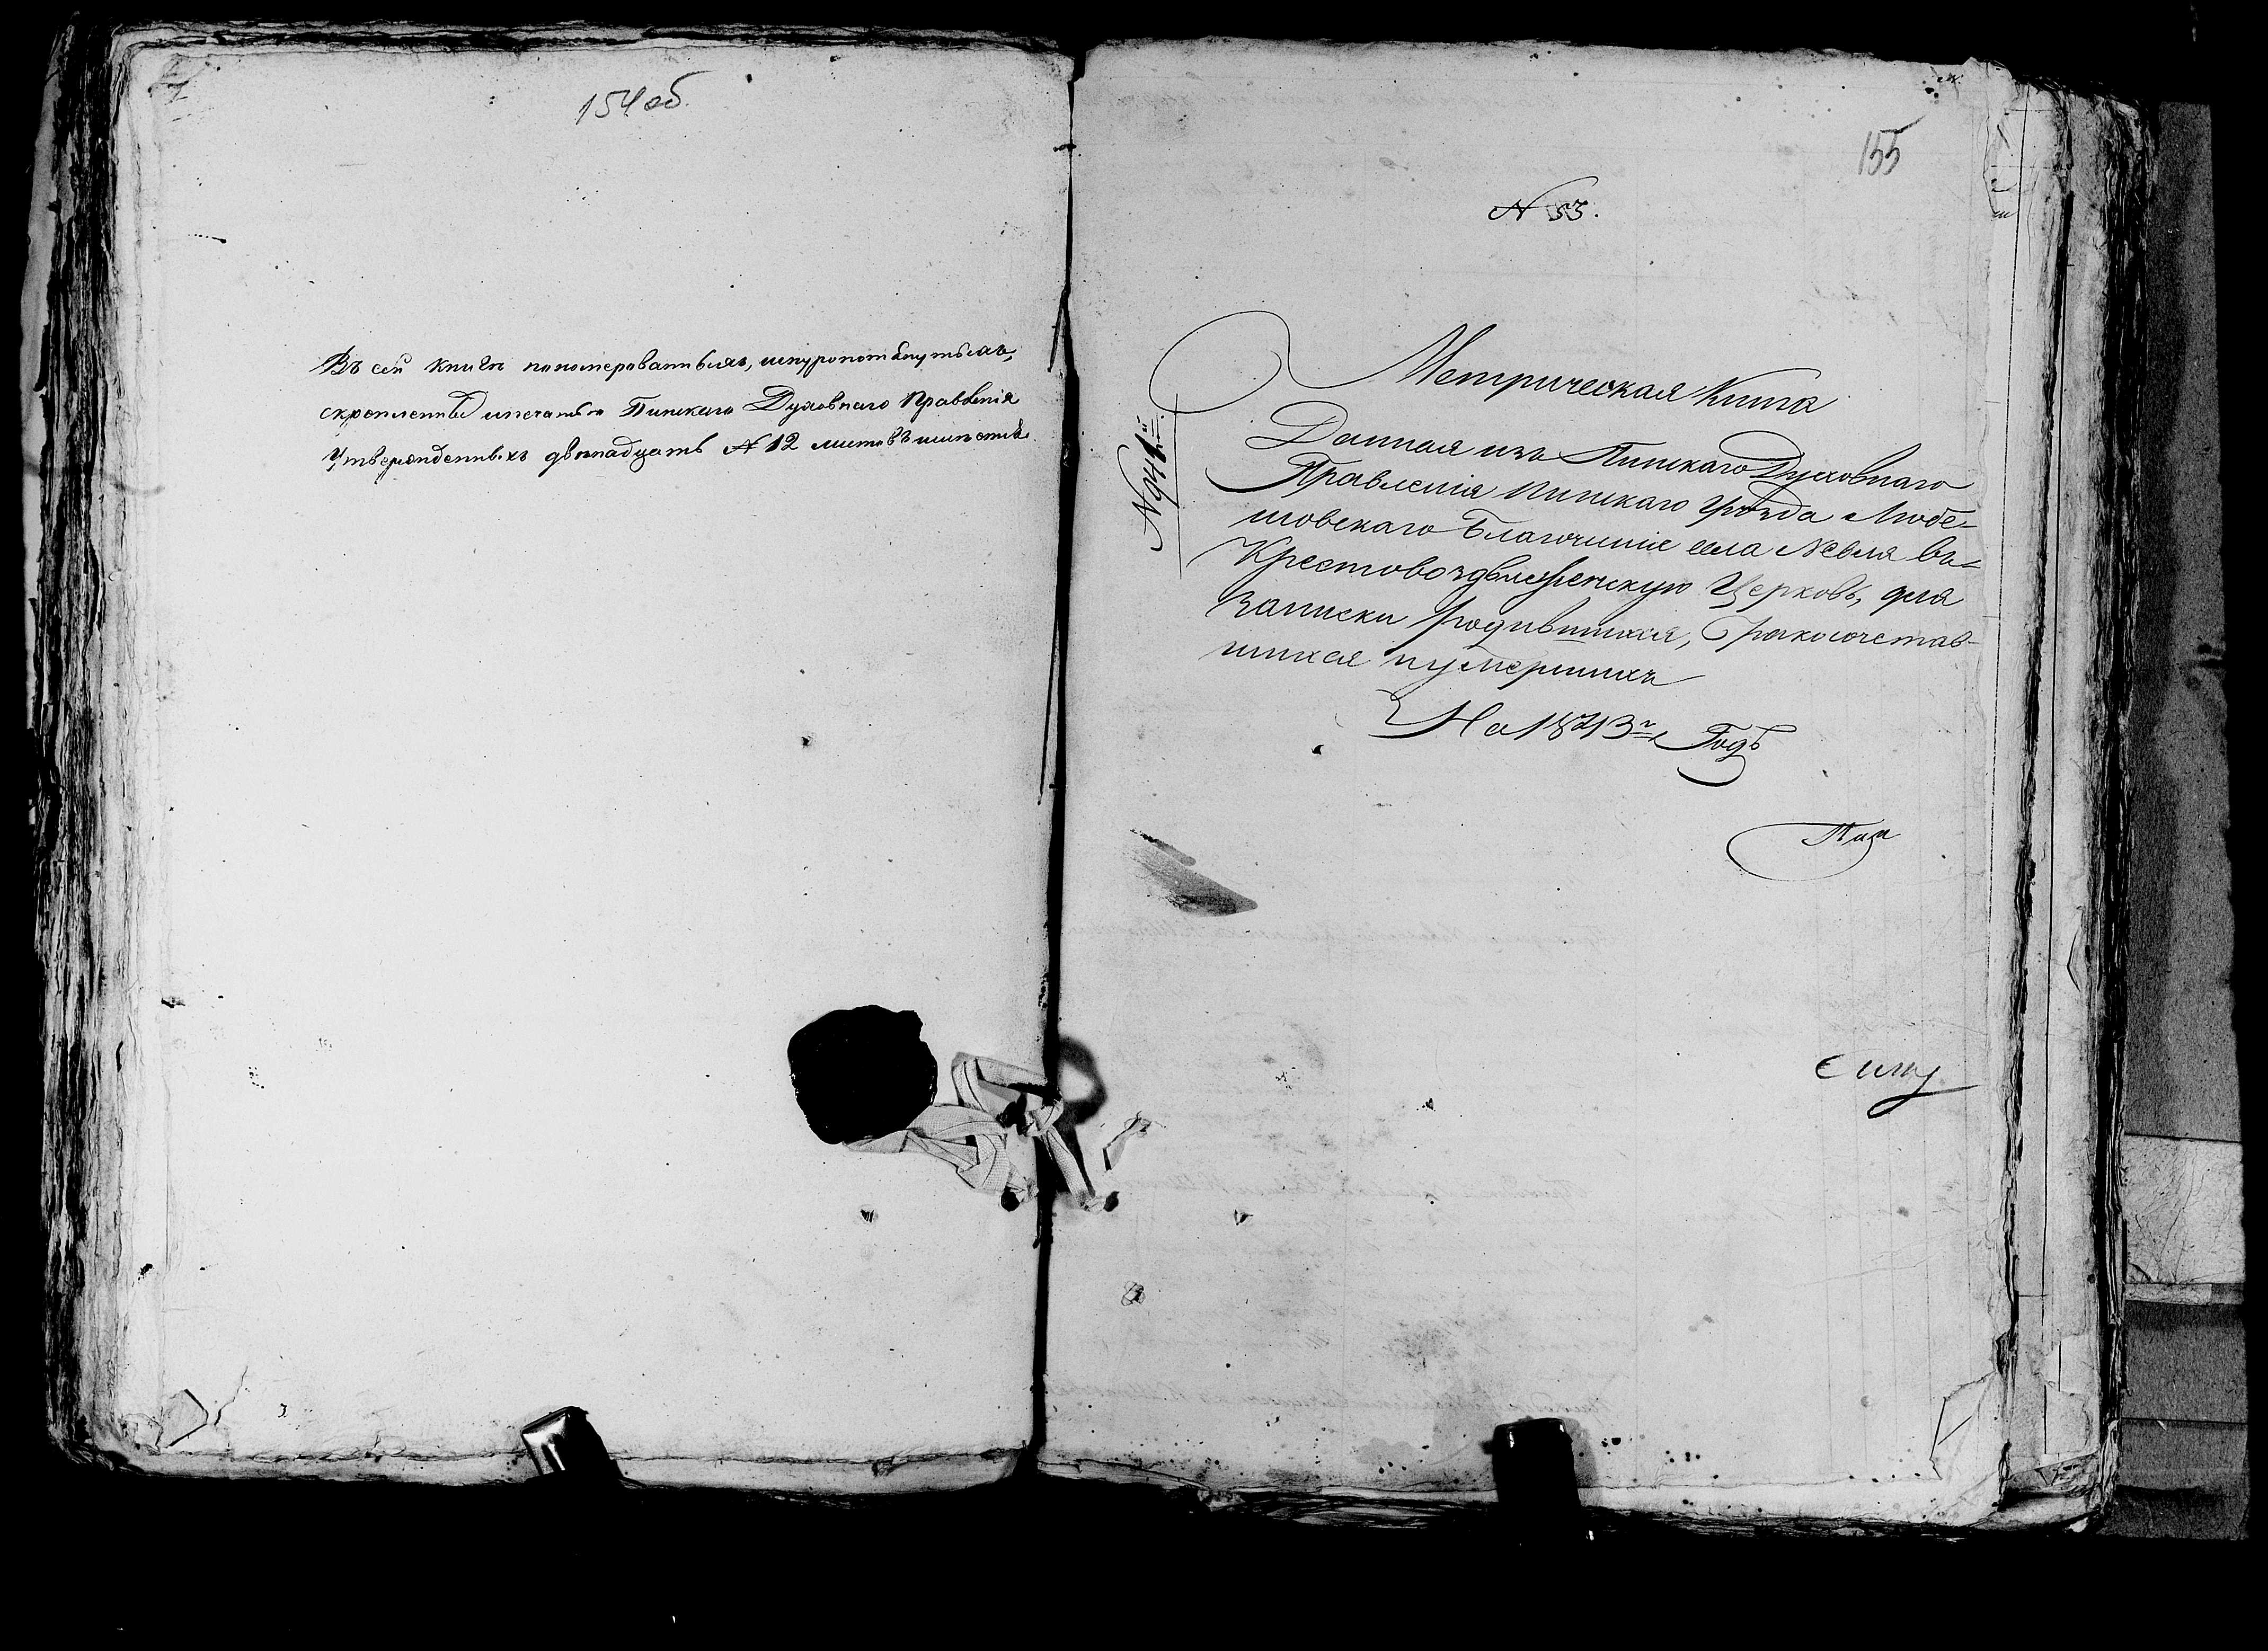 154 об.
Въ сей книгѣ пономерованныхъ, шнуропотянутыхъ,
скрепленны и печатью Пинскаго Духовнаго Правленія
Утвержденныхъ двѣнадцать № 12 листовъ имѣется
155
№ 53.
Метрическая Книга
Данная изъ Пинскаго Духовнаго
Правленія Пинскаго Уѣзда Любе-
шовскаго Благочинія села Невля въ
Крестовоздвиженскую Церковь, для
записки родившихся, бракосочетав-
шихся и умершихъ
На 1843й Годъ